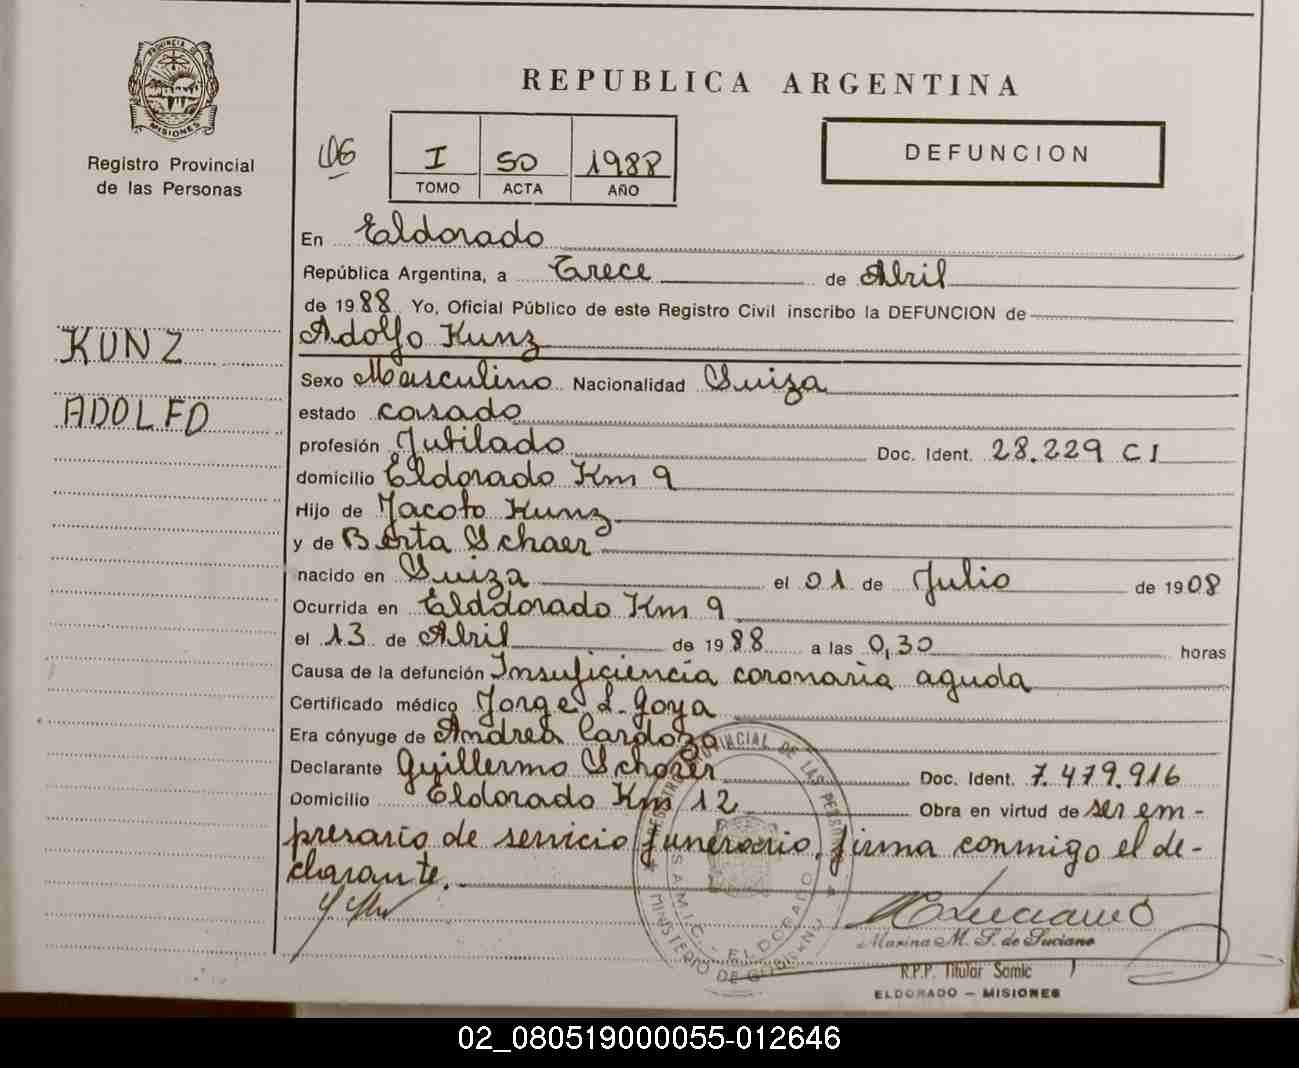 PROVINCIA DE
MISIONES
Registro Provincial
de las Personas
REPUBLICA ARGENTINA
I 50 1988
TOMO ACTA AÑO
DEFUNCION
En Eldorado
República Argentina, a Trece de Abril
de 1988 Yo, Oficial Público de este Registro Civil inscribo la DEFUNCION de
KUNZ
Adolfo Kunz
Sexo Masculino Nacionalidad Suiza
ADOLFO
estado casado
profesión Jubilado Doc. Ident. 28.229 CI
domicilio Eldorado Km 9
Hijo de Jacobo Kunz
y de Berta Schaer
nacido en Suiza el 01 de Julio de 1908
Ocurrida en Elddorado Km 9
el 13 de Abril de 1988 a las 0,30 horas
Causa de la defunción Insuficiencia coronaria aguda
Certificado médico Jorge L. Goya
Era cónyuge de Andrea Cardozo
Declarante Guillermo Schorer Doc. Ident. 7.479.916
Domicilio Eldorado Km 12 Obra en virtud de ser em-
presario de servicio funerario, firma conmigo el de-
clarante.
PROVINCIAL DE LAS PERSONAS
SAMIC - ELDORADO
MINISTERIO DE GOBIERNO
Marina M. S. de Luciano
R.P.P. Titular Samic
ELDORADO - MISIONES
02_080519000055-012646